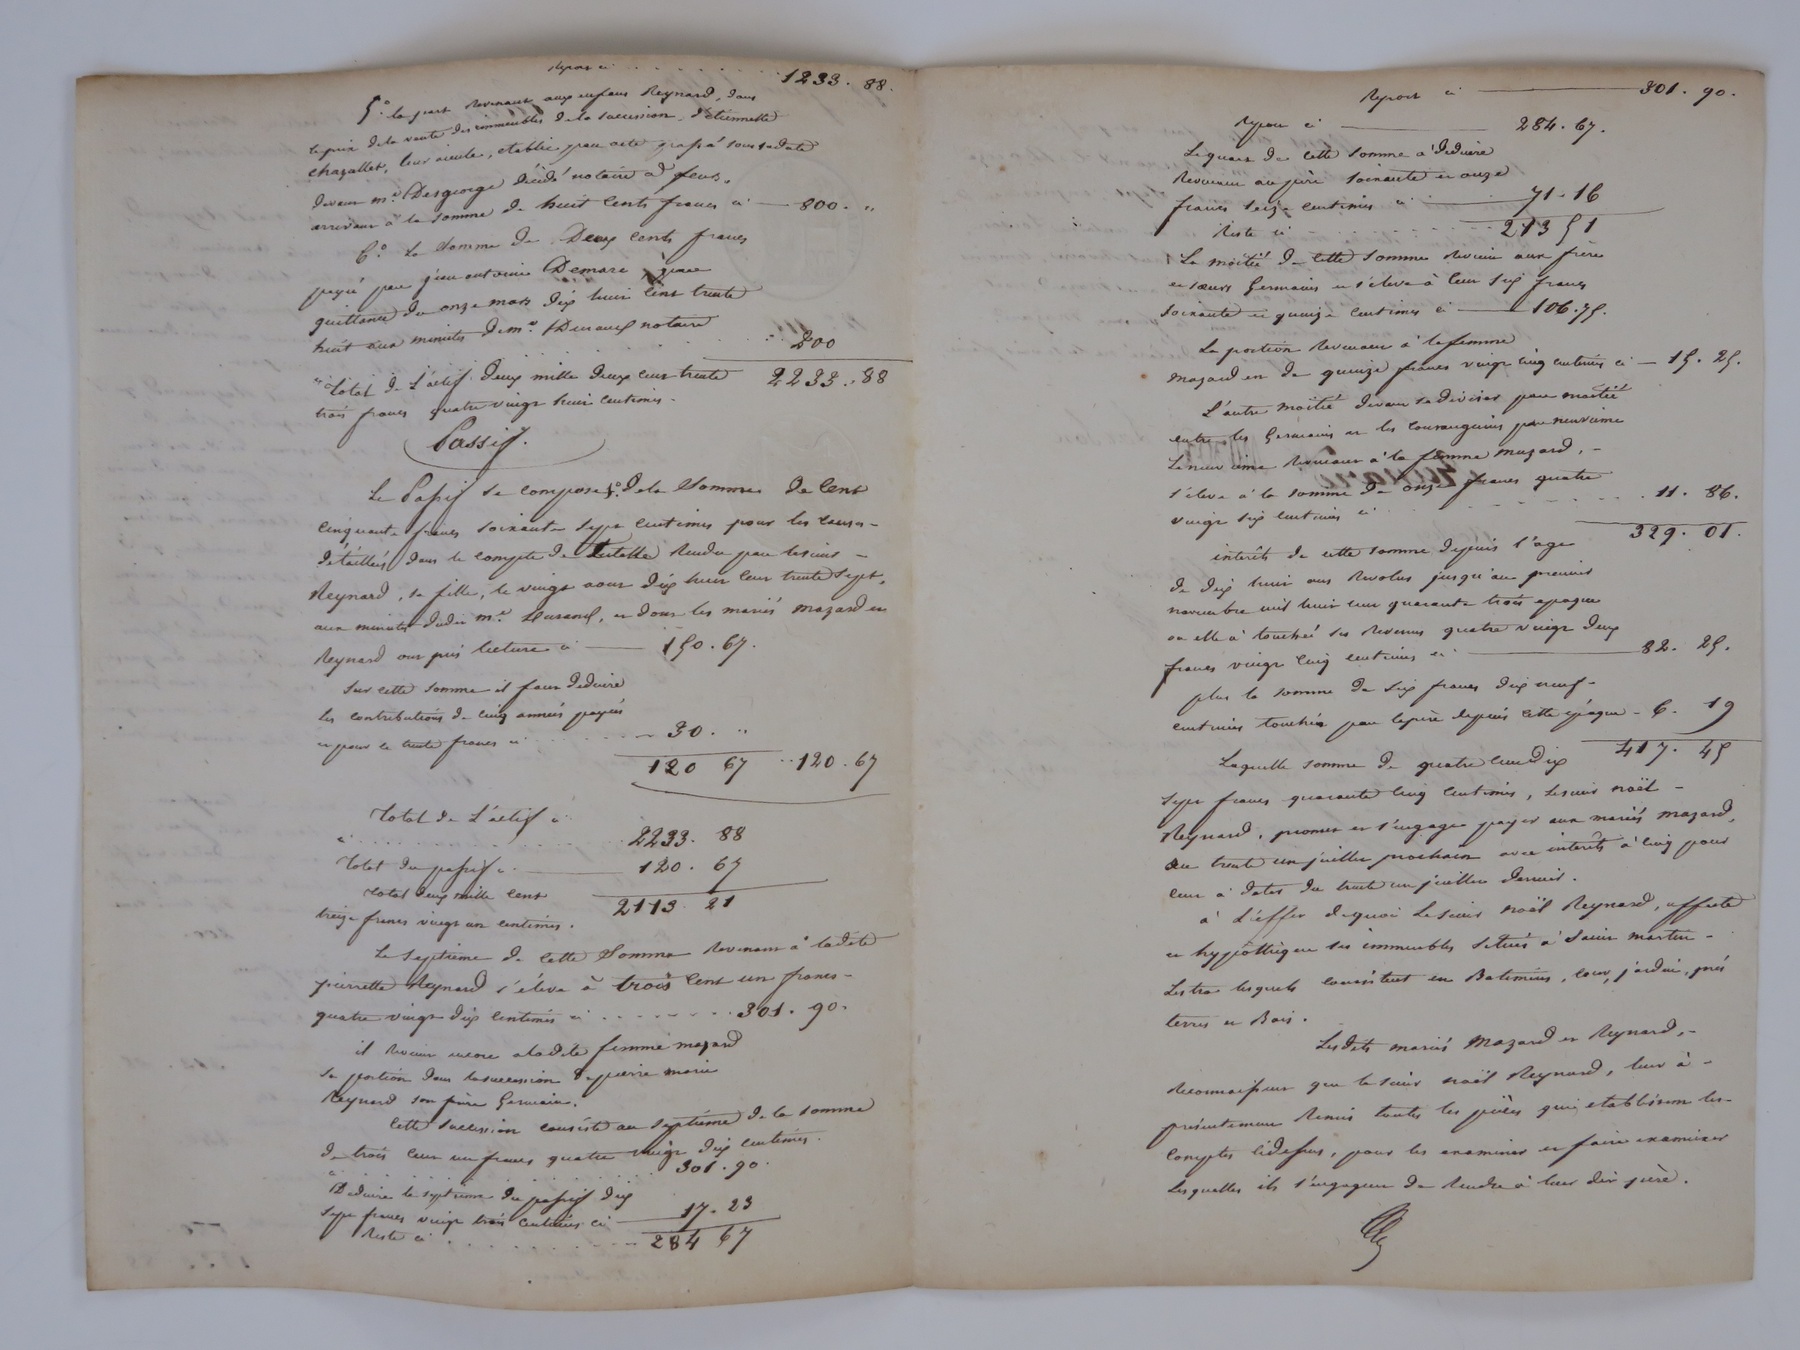 Report ci . . . . . . . 1233. 88.
5° la part Revenant aux enfans Reynard, dans
le prix de la vente des immeubles de la succession d'étiennette
chazallet, leur aieule, etablie par acte passé sous sa date
devant me Desgeorge décédé notaire à feurs,
arrivant à la somme de huit cents francs ci — 800. "
6° La Somme de Deux cents francs
payée par jean antoine Demare, suivant
quittance du onze mars dix huit cent trente
huit aux minutes de me Durand notaire
. . . . . . 200
Total de L'actif Deux mille deux cent trente 2233. 88
trois francs quatre vingt huit centimes.
Passif.
Le Passif se compose 1° de la Somme de Cent
cinquante francs soixante sept centimes pour les causes
détaillées dans le compte de Tutelle Rendu par lesieur
Reynard, sa fille, le vingt aout dix huit cent trente sept,
aux minutes dudit me Durand, et dont les mariés mazard et
Reynard ont pris lecture ci — 150. 67.
Sur cette somme il faut deduire
les contributions de cinq années payées
et pour ce trente francs ci . . . . . 30. "
120 67 . . 120. 67
Total de L'actif ci
ci . . . . . . . . 2233. 88
Total du passif ci — 120. 67
total deux mille cent 2113. 21
treize francs vingt un centimes.
Le septième de cette Somme Revenant à ladite
pierrette Reynard s'élève à trois cent un francs
quatre vingt dix centimes ci . . . . . . 301. 90.
il Revient encore à ladite femme mazard
sa portion dans la succession de pierre marie
Reynard son frère Germain.
Cette succession consiste au septième de la somme
de trois cent un francs quatre vingt dix centimes.
ci . . . . . . . 301. 90.
Déduire le septième du passif dix
sept francs vingt trois centimes ci — 17. 23
Reste ci . . . . . . . 284 67
Report ci — 301. 90.
Report ci — 284. 67.
Le quart de cette somme à déduire
Revenant au père soixante et onze
francs seize centimes ci — 71. 16
Reste ci . . . . . . 213 51
La moitié de cette somme Revient aux frères
et sœurs Germains et s'élève à cent six francs
soixante et quinze centimes ci — 106. 75.
La portion Revenant à la femme
mazard est de quinze francs vingt cinq centimes ci — 15. 25.
L'autre moitié devant se diviser par moitié
entre les Germains et les consanguins par neuvième
Le neuvième Revenant à la femme mazard,
s'élève à la somme de onze francs quatre
vingt six centimes ci . . . . . . 11. 86.
329. 01.
interêts de cette somme depuis l'age
de dix huit ans Revolus jusqu'au premier
novembre mil huit cent quarante trois epoque
ou elle à touché ses Revenus quatre vingt deux
francs vingt cinq centimes ci — 82. 25.
plus la somme de six francs dix neuf
centimes touchés par le père depuis cette époque - 6. 19
417. 45
Laquelle somme de quatre cent dix
sept francs quarante cinq centimes, lesieur noël
Reynard, promet et s'engage payer aux mariés mazard,
au trente un juillet prochain avec interêts à cinq pour
cent à dater du trente un juillet dernier.
à L'effet de quoi Lesieur noël Reynard, affecte
et hypothèque ses immeubles situés à Saint martin
Lestra lesquels consistent en Batimens, cour, jardin, prés
terres et Bois.
Lesdits mariés Mazard et Reynard,
Reconnaissent que le sieur noël Reynard, leur à
présentement Remis toutes les pièces qui etablissent les
comptes cidessus, pour les examiner et faire examiner
Lesquelles ils s'engagent de Rendre à leur dit père.